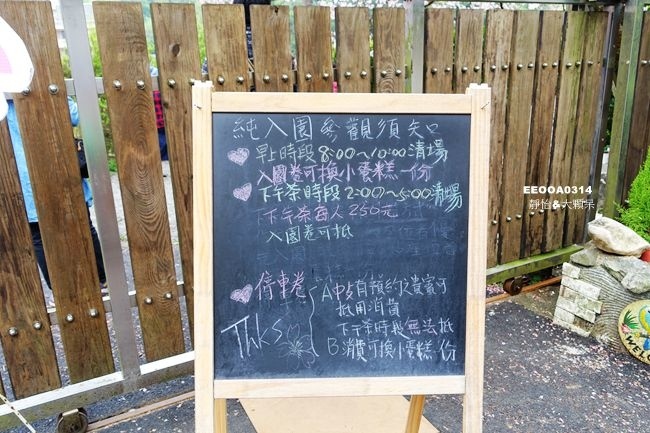 純入園參觀須知
早上時段8:00~10:00清場
入園卷可換小蛋糕一份
下午茶時段2:00~5:00清場
下午茶每人250元
入園卷可抵
停車卷
A中午有預約之貴賓可
抵用消費
下午茶時段無法抵
B消費可換小蛋糕一份
Thks
EEOOA0314
靜怡&大顆呆
WELCO